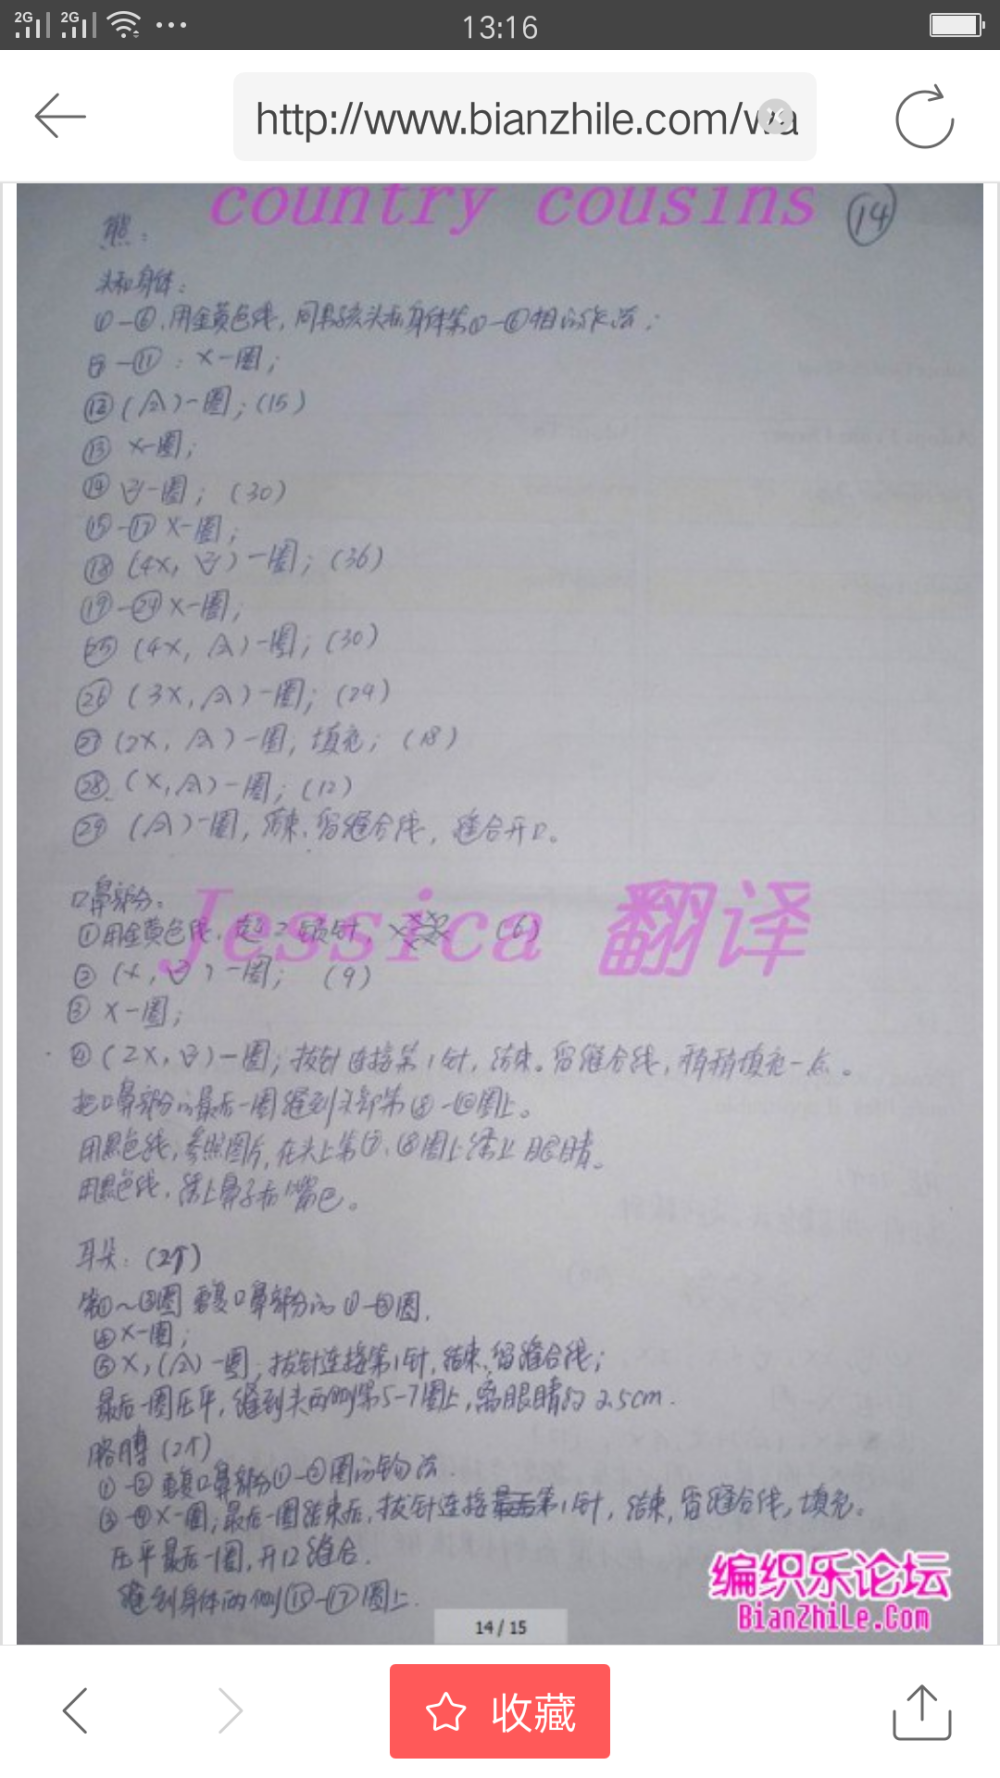 2G 2G 13:16
http://www.bianzhile.com/wa
country cousins
14
熊:
头和身体:
①-⑥.用金黄色线,同男孩头和身体第①-⑥相的作法;
-⑪:X一圈;
⑫(A)一圈;(15)
⑬ X一圈;
⑭ V一圈;(30)
⑮-⑰ X一圈;
⑱(4X, V)一圈;(36)
⑲-㉔ X一圈;
㉕(4X, A)一圈;(30)
㉖(3X, A)一圈;(24)
㉗(2X, A)一圈;填充;(18)
㉘(X, A)一圈;(12)
㉙(A)一圈,结束.留缝合线,缝合开口。
口鼻部分:
①用金黄色线.起2锁针, (6)
②(X, V)一圈; (9)
③ X一圈;
④(2X, V)一圈;拔针连接第1针,结束。留缝合线,稍稍填充一点。
把口鼻部分的最后一圈缝到头部第⑧-⑩圈上。
用黑色线,参照图片,在头上第⑦、⑧圈上绣上眼睛。
用黑色线,绣上鼻子和嘴巴。
Jessica 翻译
耳朵:(2个)
第①~③圈 重复口鼻部分的①-③圈.
④X一圈;
⑤X,(A)一圈;拔针连接第1针,结束.留缝合线;
最后一圈压平,缝到头两侧第5-7圈上,离眼睛约2.5cm.
胳膊(2个)
①-② 重复口鼻部分①-②圈的钩法.
③-⑨X一圈;最后一圈结束后,拔针连接第1针,结束,留缝合线,填充。
压平最后一圈,开口缝合.
缝到身体两侧⑮-⑰圈上.
编织乐论坛
BianZhiLe.Com
14 / 15
收藏